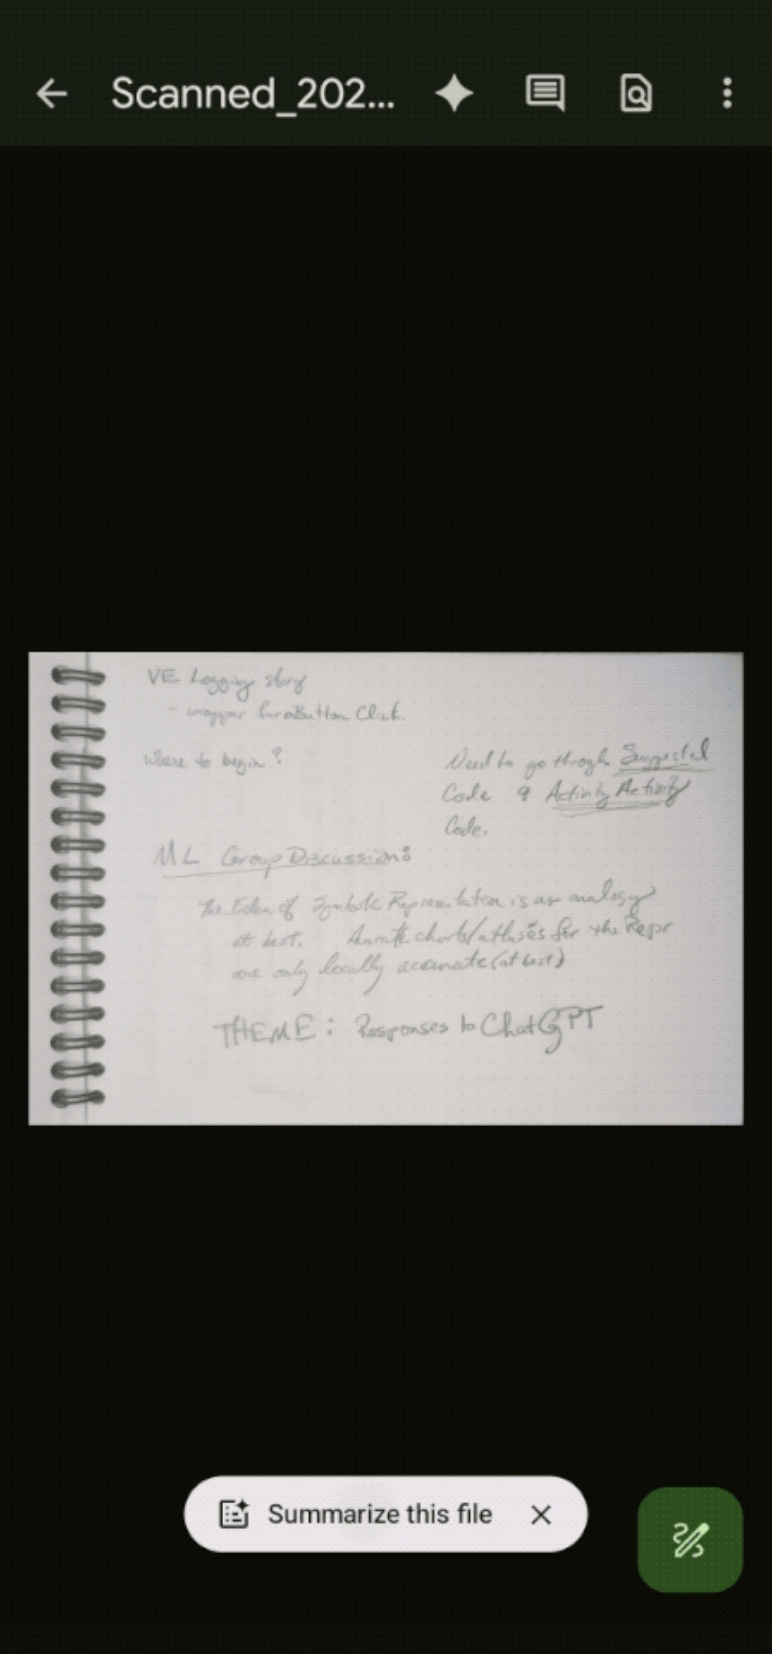 Scanned_202...
VE Logging story
- wrapper for Button Click.
Where to begin?
Need to go throgh Suggested
Code & Activity Activity
Code.
ML Group Discussion:
The Idea of Symbolic Representation is an analogy
at best. charts/atlases for the Repr
are only locally accurate (at best)
THEME: Responses to ChatGPT
Summarize this file